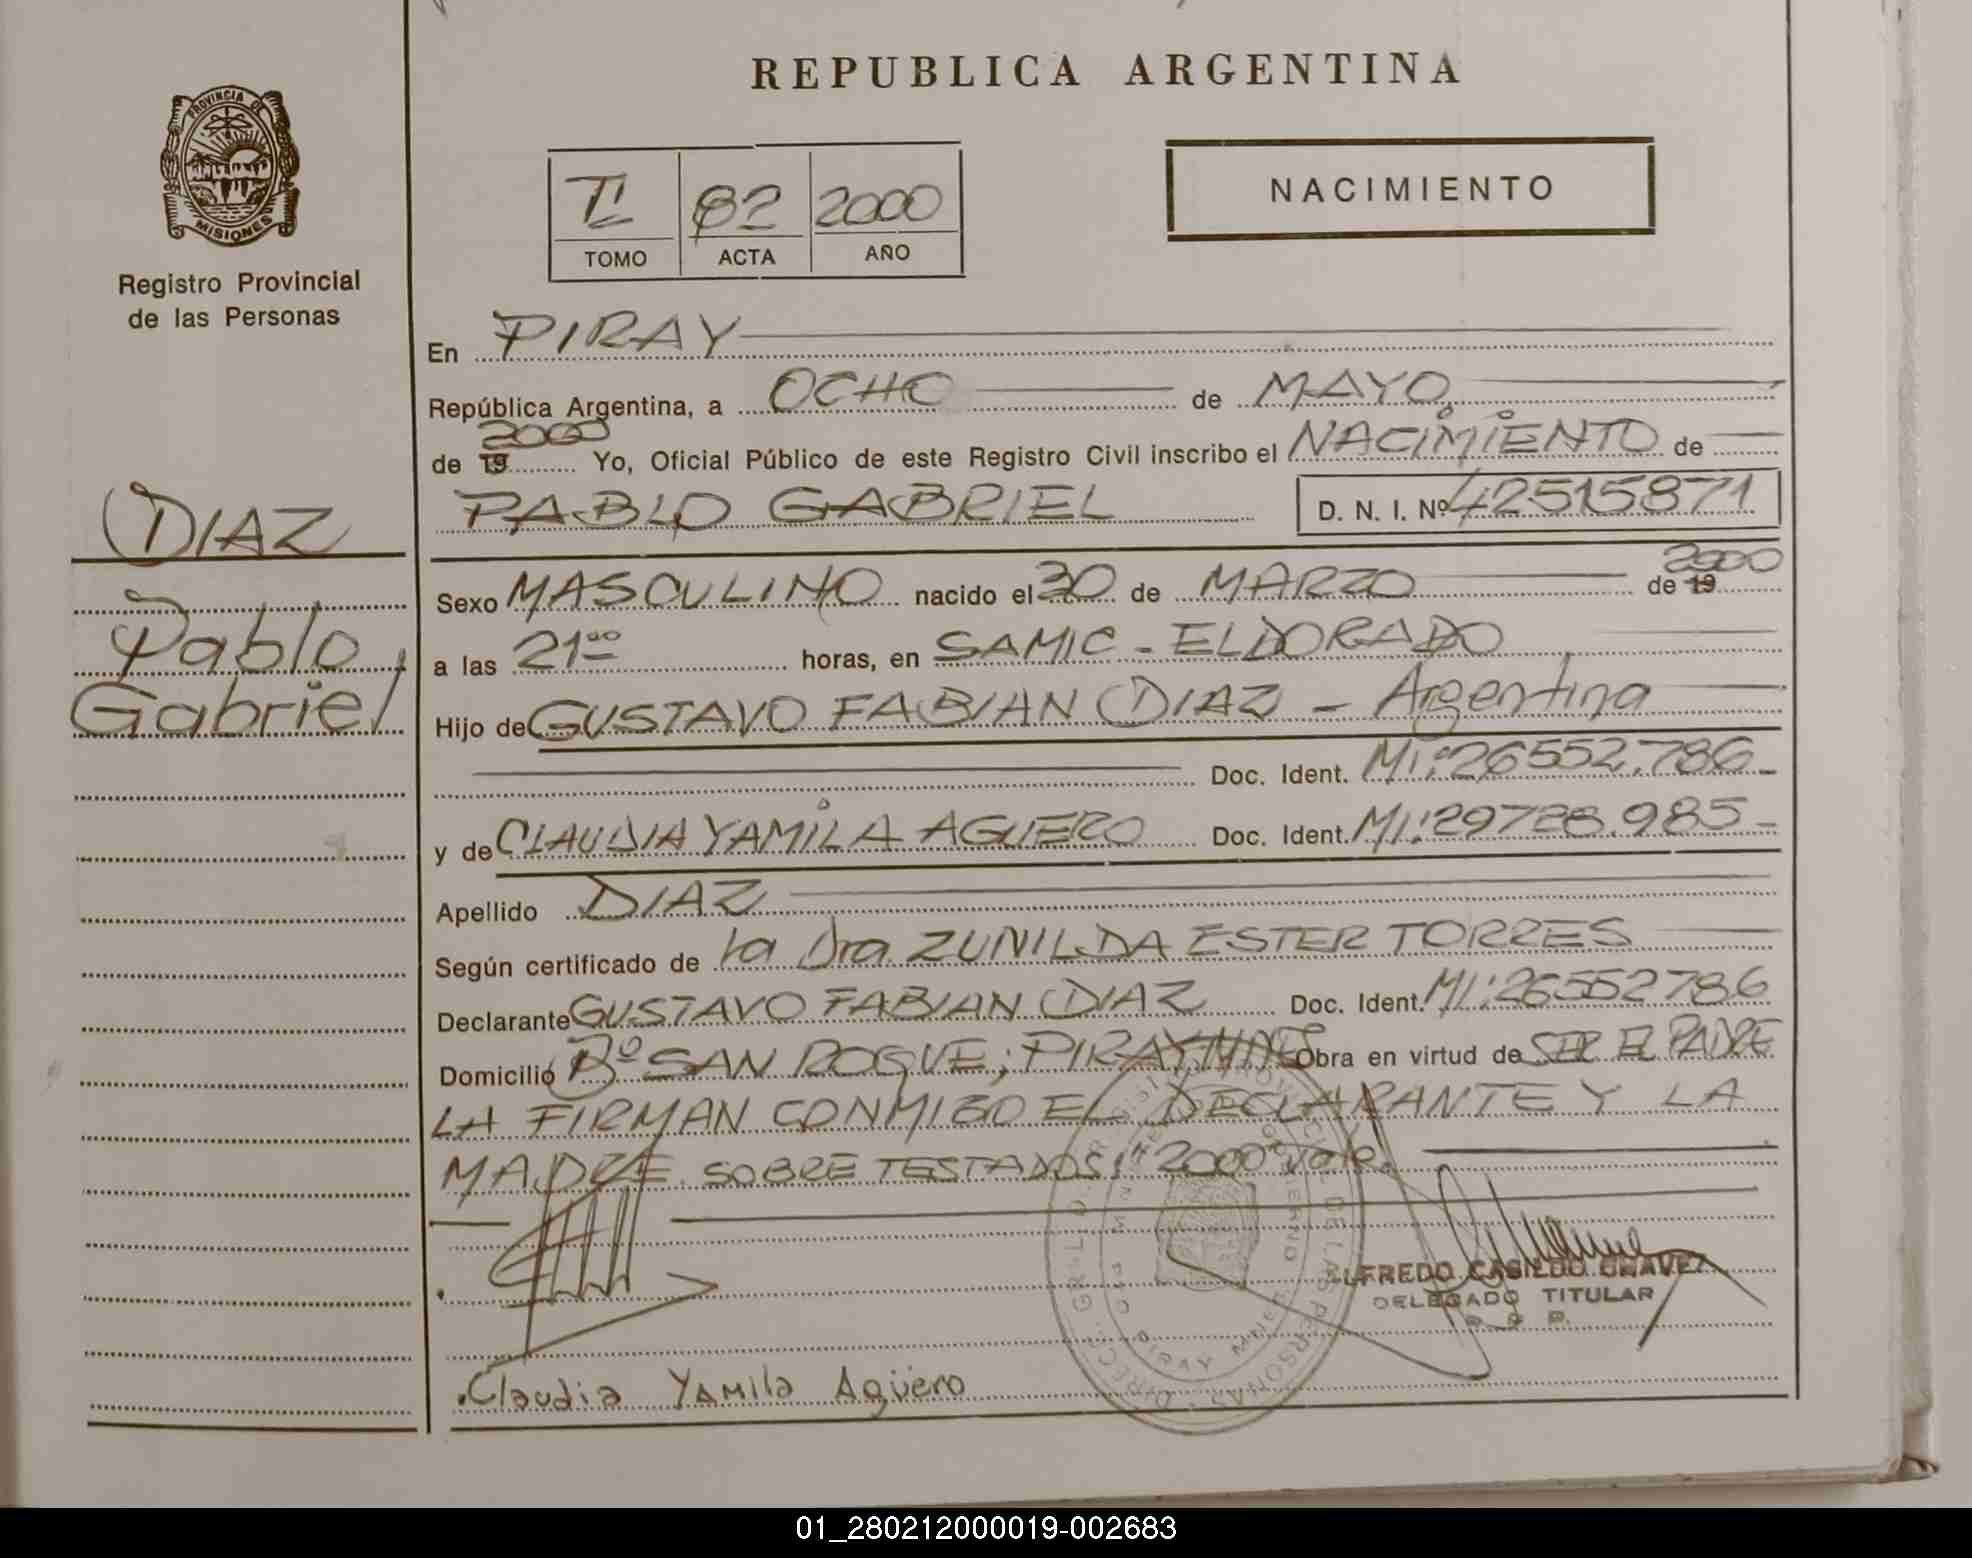 REPUBLICA ARGENTINA
PROVINCIA DE
MISIONES
Registro Provincial
de las Personas
82 2000
TOMO ACTA AÑO
NACIMIENTO
En PIRAY
República Argentina, a OCHO de MAYO
2000
de 19 Yo, Oficial Público de este Registro Civil inscribo el NACIMIENTO de
PABLO GABRIEL D. N. I. Nº 42515871
DIAZ
Pablo
Gabriel
2000
Sexo MASCULINO nacido el 30 de MARZO de 19
a las 21 00 horas, en SAMIC - ELDORADO
Hijo de GUSTAVO FABIAN DIAZ - Argentina
Doc. Ident. MI: 26552.786-
y de CLAUDIA YAMILA AGUERO Doc. Ident. MI: 29728.985-
Apellido DIAZ
Según certificado de la Dra ZUNILDA ESTER TORRES
Declarante GUSTAVO FABIAN DIAZ Doc. Ident. MI: 26552786
Domicilio Bº SAN ROQUE; PIRAY MNES Obra en virtud de SER EL PADRE
LA FIRMAN CONMIGO EL DECLARANTE Y LA
MADRE. SOBRE TESTADOS: "2000" Vale.
ALFREDO CASILDO CHAVEZ
DELEGADO TITULAR
R. P. P.
Claudia Yamila Agüero
01_280212000019-002683